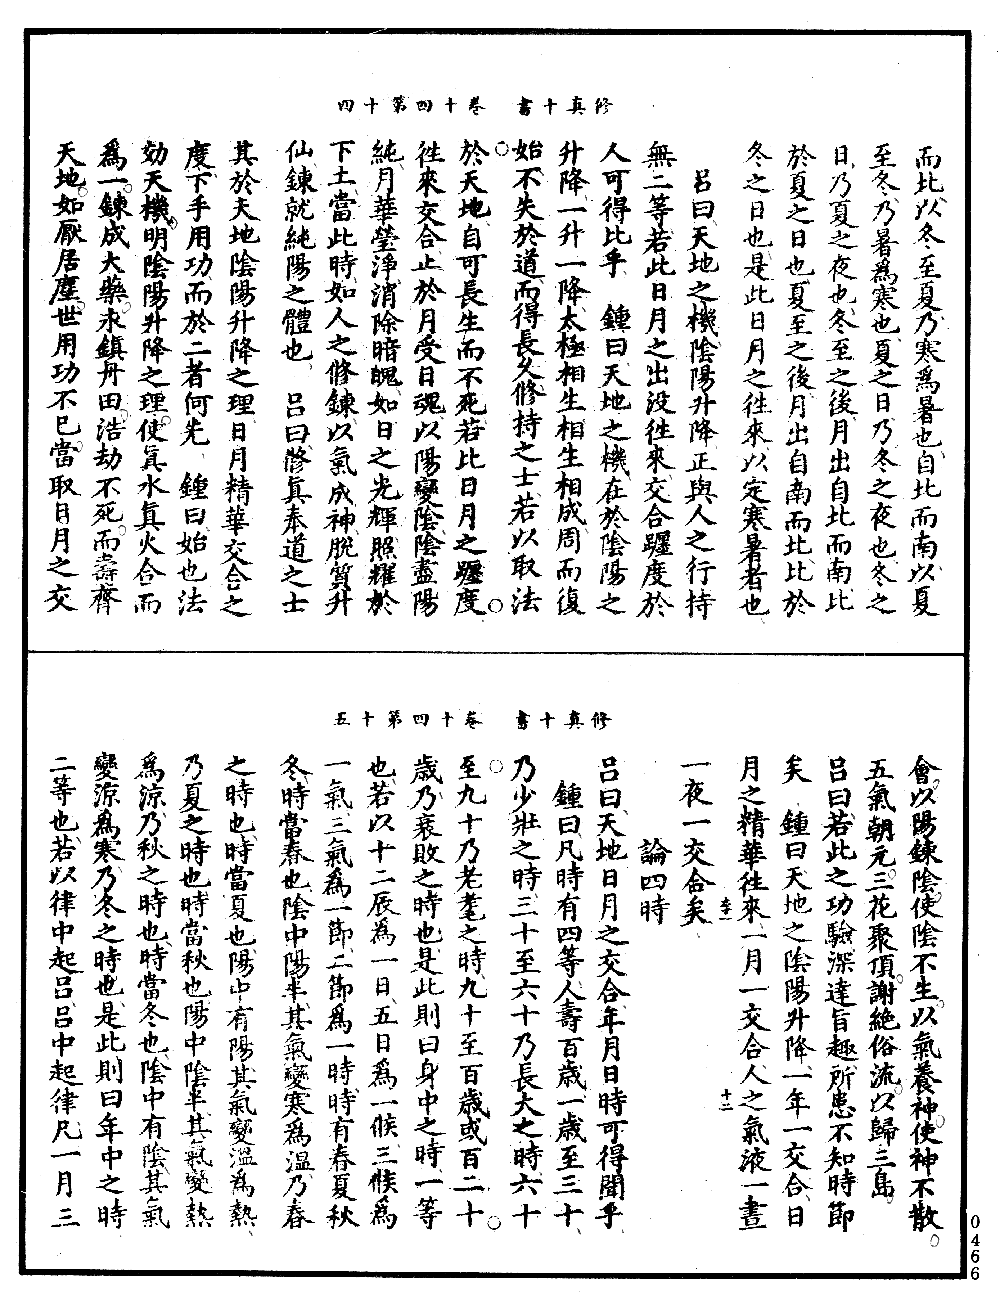 修真十書　卷十四第十四
而北以冬至夏乃寒爲暑也自北而南以夏
至冬乃暑爲寒也夏之日乃冬之夜也冬之
日乃夏之夜也冬至之後月出自北而南比
於夏之日也夏至之後月出自南而北比於
冬之日也是此日月之往來以定寒暑者也
吕曰天地之機陰陽升降正與人之行持
無二等若此日月之出没往來交合躔度於
人可得比乎　鍾曰天地之機在於陰陽之
升降一升一降太極相生相生相成周而復
始不失於道而得長久修持之士若以取法
於天地自可長生而不死若比日月之躔度
往來交合止於月受日魂以陽變陰陰盡陽
純月華瑩淨消除暗魄如日之光輝照耀於
下土當此時如人之修鍊以氣成神脫質升
仙鍊就純陽之體也　吕曰修真奉道之士
其於天地陰陽升降之理日月精華交合之
度下手用功而於二者何先　鍾曰始也法
効天機明陰陽升降之理使真水真火合而
爲一鍊成大藥永鎮丹田浩劫不死而壽齊
天地如厭居塵世用功不已當取日月之交
修真十書　卷十四第十五
會以陽鍊陰使陰不生以氣養神使神不散
五氣朝元三花聚頂謝絶俗流以歸三島
吕曰若此之功驗深達旨趣所患不知時節
矣　鍾曰天地之陰陽升降一年一交合日
月之精華往來一月一交合人之氣液一晝
一夜一交合矣
十二
論四時
吕曰天地日月之交合年月日時可得聞乎
鍾曰凡時有四等人壽百歳一歳至三十
乃少壯之時三十至六十乃長大之時六十
至九十乃老耄之時九十至百歳或百二十
歳乃衰敗之時也是此則曰身中之時一等
也若以十二辰爲一日五日爲一候三候爲
一氣三氣爲一節二節爲一時時有春夏秋
冬時當春也陰中陽半其氣變寒爲温乃春
之時也時當夏也陽中有陽其氣變温爲熱
乃夏之時也時當秋也陽中陰半其氣變熱
爲涼乃秋之時也時當冬也陰中有陰其氣
變涼爲寒乃冬之時也是此則曰年中之時
二等也若以律中起吕吕中起律凡一月三
0466